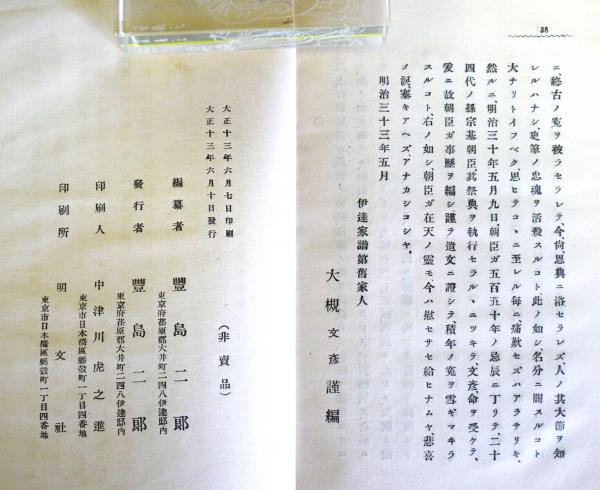 38
ニ終古ノ寃ヲ被ラセラレテ、今、尙、恩典ニ洛セラレズ、人ノ其大節ヲ知
レルハナシ、史筆ノ忠魂ヲ活殺スルコト、此ノ如シ、名分ニ關スルコト
大ナリトイフベク、思ヒテココニ至レル每ニ、痛歎セズハアラザリキ、
然ルニ、明治三十年五月九日、朝臣ガ五百五十年ノ忌辰ニ丁リテ、二十
四代ノ孫宗基朝臣、其祭典ヲ執行セラル、ニツキテ、文彥、命ヲ受ケテ、
爰ニ故朝臣ガ事歷ヲ編シ、謹テ遺文ニ證シテ、積年ノ寃ヲ雪ギマヰラ
スルコト、右ノ如シ、朝臣ガ在天ノ靈モ、今ハ慰セサセ給ヒナムヤ、悲喜
ノ淚、塞キアヘズ、アナカシコシヤ、
明治三十三年五月
伊達家譜第舊家人
大槻文彥謹編
(非賣品)
大正十三年六月七日印刷
大正十三年六月十日發行
編纂者 豐島二郞
東京府荏原郡大井町二四八伊達邸內
發行者 豐島二郞
東京府荏原郡大井町二四八伊達邸內
印刷人 中津川虎之進
東京市日本橋區蠣殼町一丁目四番地
印刷所 明文社
東京市日本橋區蠣殼町一丁目四番地